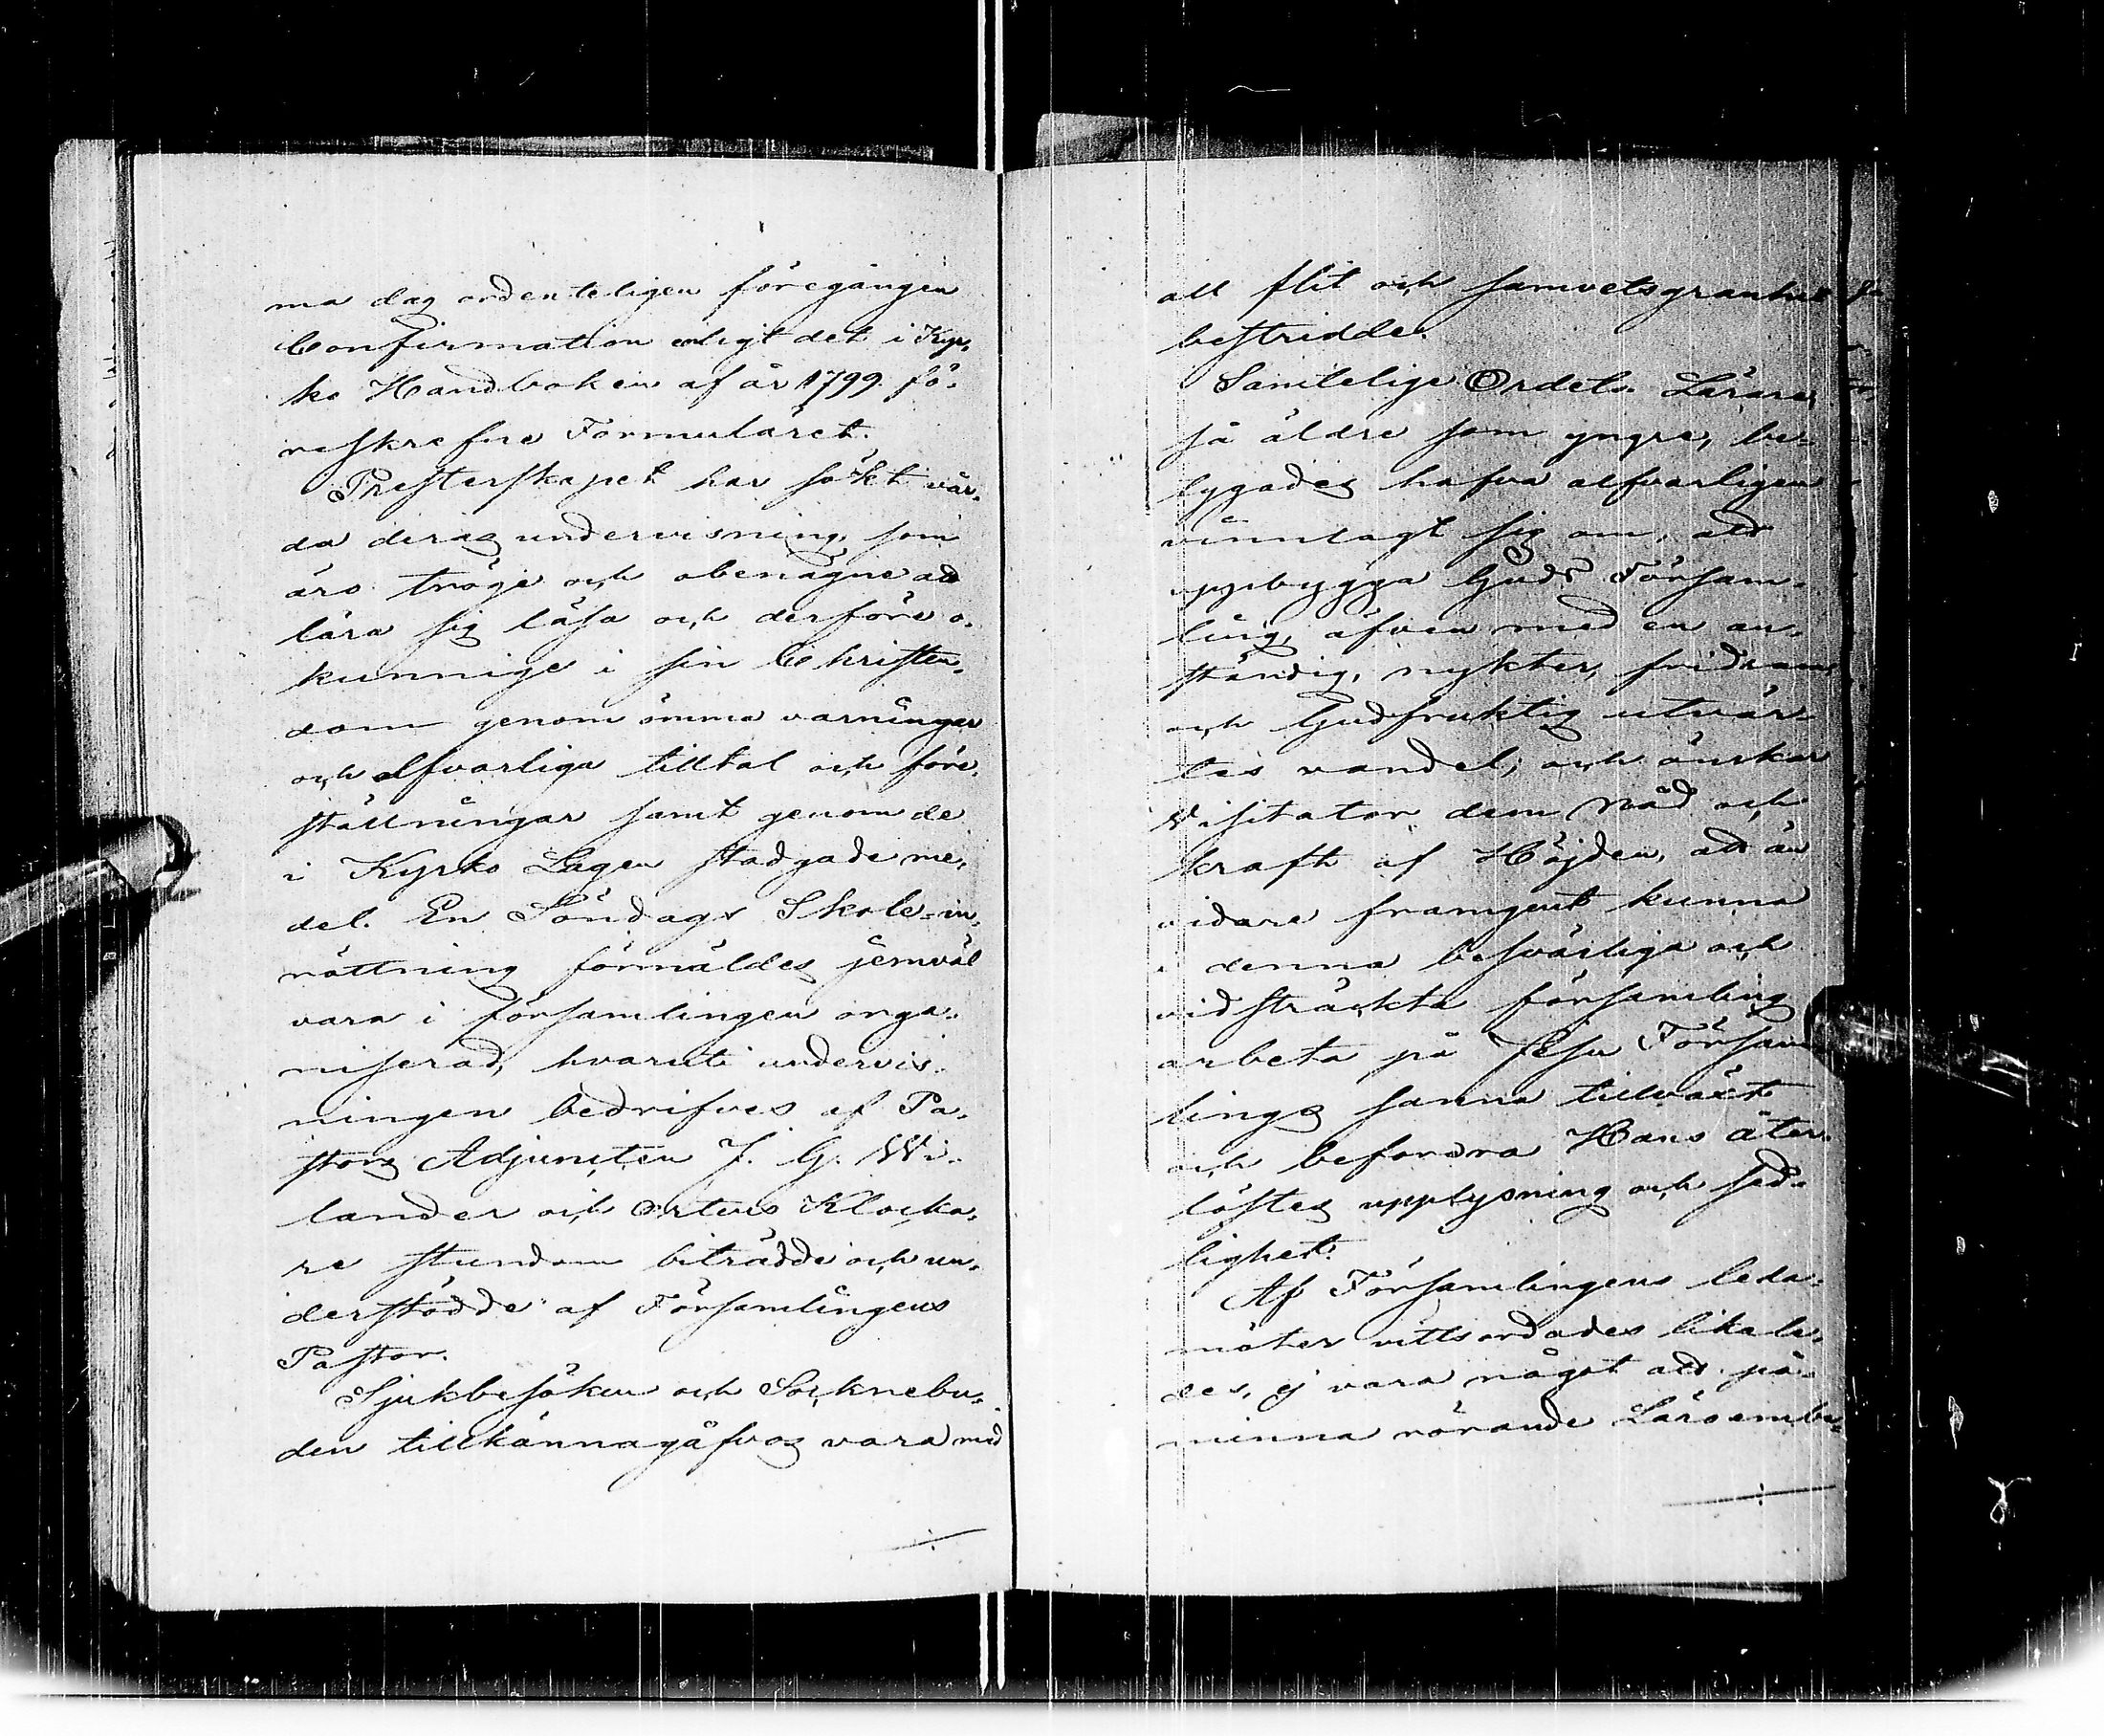 ma dag ordenteligen föregången
Confirmation enligt det i Kyr,
ko Handboken af år 1799. fö,
reskrefne Formuläret.
Presterskapet har sökt vår,
da deras undervisning, som
äro tröge och obenägne att
lära sig läsa och derföre o,
kunnige i sin Christen,
dom genom ömma varningar
och alfvarliga tilltal och före,
ställningar samt genom de
i Kyrko Lagen stadgade me,
del. En Söndags Skole-in,
rättning förmäldes jemväl
vara i församlingen orga,
niserad, hvaruti undervis,
ningen bedrifves af Pa,
stors Adjuncten J. G. Wi,
lander och ortens Klocka,
re stundom biträdde och un,
derstödde af Församlingens
Pastor.
Sjukbesöken och Socknebu,
den tillkännagåfvos vara med
all flit och samvetsgranhet
bestridde.
Samtelige Ordets Lärare,
så äldre som yngre, be,
tygades hafva alfvarligen
vinnlagt sig om, att
uppbygga Guds Försam,
ling, äfven med en an,
ständig, nykter, fridsam
och Gudfruktig utvär,
tes vandel; och önskar
Visitator dem nåd och
kraft af Höjden, att än
vidare framgent kunna
i denna besvärliga och
vidsträckta församling
arbeta på Jesu Försam
lings sanna tillväxt
och befordra Hans åter,
löstes upplysning och sed,
lighet.
Af Församlingens leda,
möter vittsordades likale,
des, ej vara något att på,
minna rörande Läroembe,